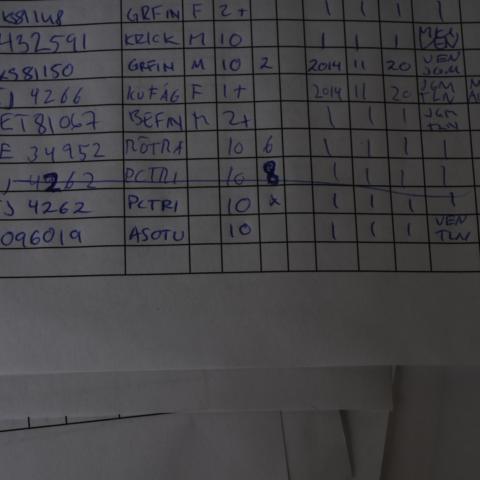 KS81148 GRFIN F 2+ 1 1 1 1
432591 KRICK M 10 1 1 1 VEN
KS81150 GRFIN M 10 2 2014 11 20 VEN JGM
J 4266 KUTÁG F 1+ 2014 11 20 JGM TLN
ET81067 BEFIN M 2+ 1 1 1 JGM TLN
E 34952 ROTRA 10 6 1 1 1 1
J 4262 PCTRI 10 8 1 1 1 1
J 4262 PCTRI 10 x 1 1 1 1
096019 ASOTU 10 1 1 1 VEN TLN